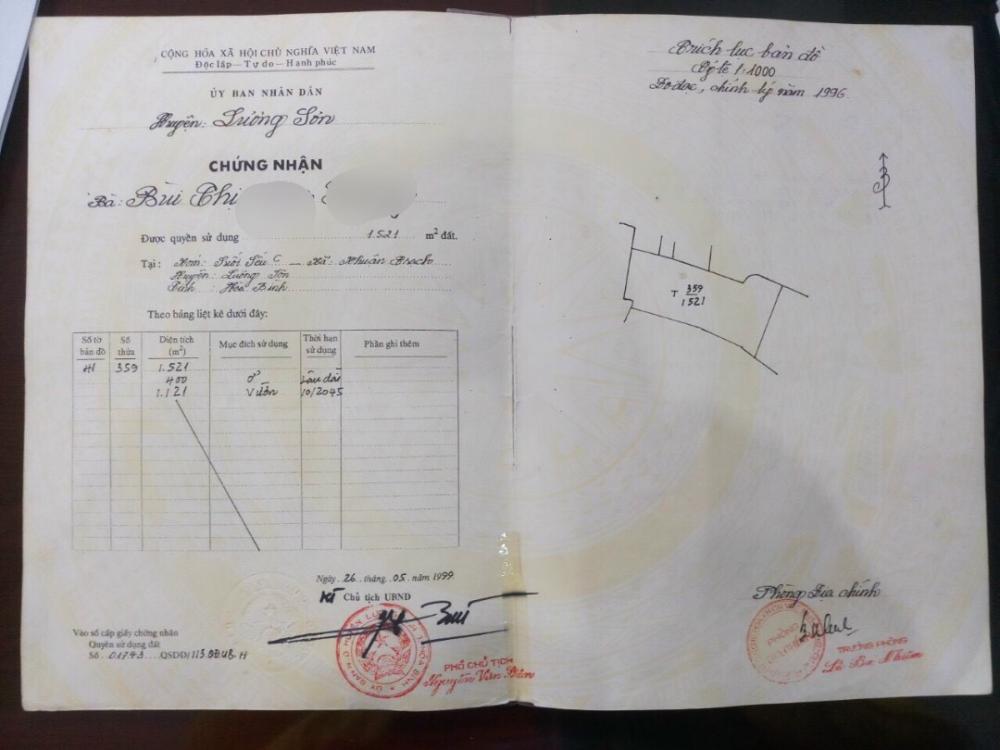 CỘNG HÒA XÃ HỘI CHỦ NGHĨA VIỆT NAM
Độc lập — Tự do — Hạnh phúc
ỦY BAN NHÂN DÂN
Huyện: Lương Sơn
CHỨNG NHẬN
Bà: Bùi Thị
Được quyền sử dụng 1.521 m² đất.
Tại: Xóm: Suối Sếu C — Xã: Nhuận Trạch
Huyện: Lương Sơn
Tỉnh: Hòa Bình
Theo bảng liệt kê dưới đây:
Số tờ bản đồ Số thửa Diện tích (m²) Mục đích sử dụng Thời hạn sử dụng Phần ghi thêm
359 1.521
400 ở Lâu dài
1.121 Vườn 10/2045
Ngày 26 tháng 05 năm 1999
KT Chủ tịch UBND
PHÓ CHỦ TỊCH
Nguyễn Văn
Vào sổ cấp giấy chứng nhận
Quyền sử dụng đất
Số 01743 QSDĐ/113 QĐUB H
Trích lục bản đồ
Tỷ lệ 1:1000
Đo đạc, chỉnh lý năm 1996
T 359
1521
Phòng Địa chính
TRƯỞNG PHÒNG
Lê Bá